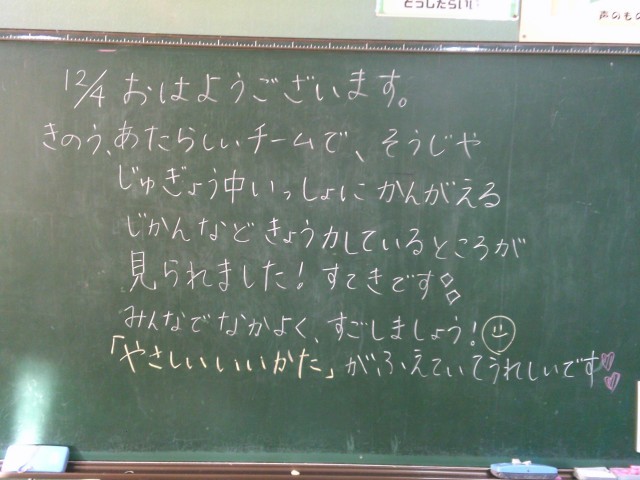 どうしたらいい
声のもの
12/4 おはようございます。
きのう、あたらしいチームで、そうじや
じゅぎょう中いっしょにかんがえる
じかんなどきょう力しているところが
見られました!すてきです
みんなでなかよく、すごしましょう!
「やさしいいいかた」が、ふえていてうれしいです